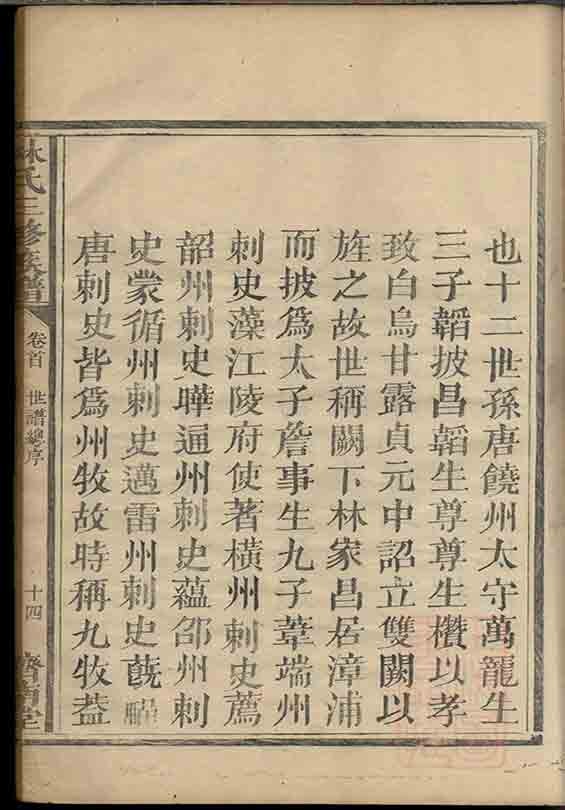 也十二世孫唐饒州太守萬寵生
三子韜披昌韜生尊尊生欑以孝
致白烏甘露貞元中詔立雙闕以
旌之故世稱闕下林家昌居漳浦
而披爲太子詹事生九子葦端州
刺史藻江陵府使著橫州刺史薦
韶州刺史曄通州刺史蘊邵州刺
史蒙循州刺史邁雷州刺史蔇
唐刺史皆爲州牧故時稱九牧葢
林氏三修族譜
卷首 世譜總序
十四